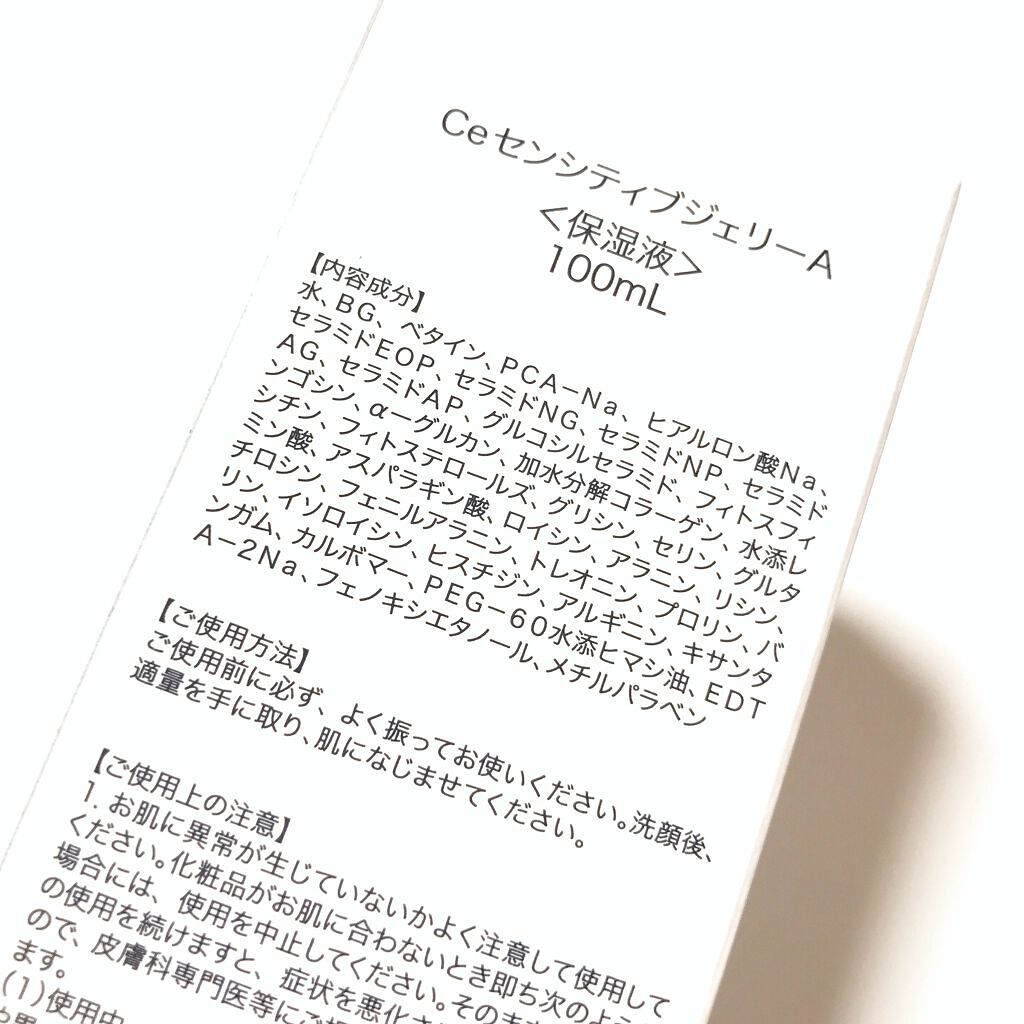 CeセンシティブジェリーA
<保湿液>
100mL
【内容成分】
水、BG、ベタイン、PCA-Na、ヒアルロン酸Na、
セラミドEOP、セラミドNG、セラミドNP、セラミド
AG、セラミドAP、グルコシルセラミド、フィトスフィ
ンゴシン、α-グルカン、加水分解コラーゲン、水添レ
シチン、フィトステロールズ、グリシン、セリン、グルタ
ミン酸、アスパラギン酸、ロイシン、アラニン、リシン、
チロシン、フェニルアラニン、トレオニン、プロリン、バ
リン、イソロイシン、ヒスチジン、アルギニン、キサンタ
ンガム、カルボマー、PEG-60水添ヒマシ油、EDT
A-2Na、フェノキシエタノール、メチルパラベン
【ご使用方法】
ご使用前に必ず、よく振ってお使いください。洗顔後、
適量を手に取り、肌になじませてください。
【ご使用上の注意】
1. お肌に異常が生じていないかよく注意して使用して
ください。化粧品がお肌に合わないとき即ち次のような
場合には、使用を中止してください。そのまま
の使用を続けますと、症状を悪化さ
ので、皮膚科専門医等にご相
ます。
(1)使用中